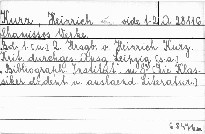 Kurz, Heinrich vide 1-2 O. 28116
Chamissos Werke.
Bd. 1 (u.) 2. Hrsgb. v. Heinrich Kurz.
Krit. durchges. Ausg. Leipzig (s.a.)
Bibliograph. Institut. 8° (Die Klas-
siker d. deut. u. ausländ. Literatur.)